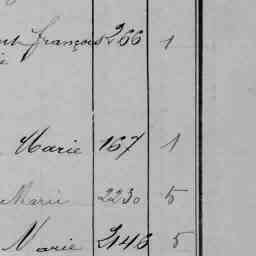 François 266 1
Marie 167 1
Marie 2230 5
Marie 2146 5